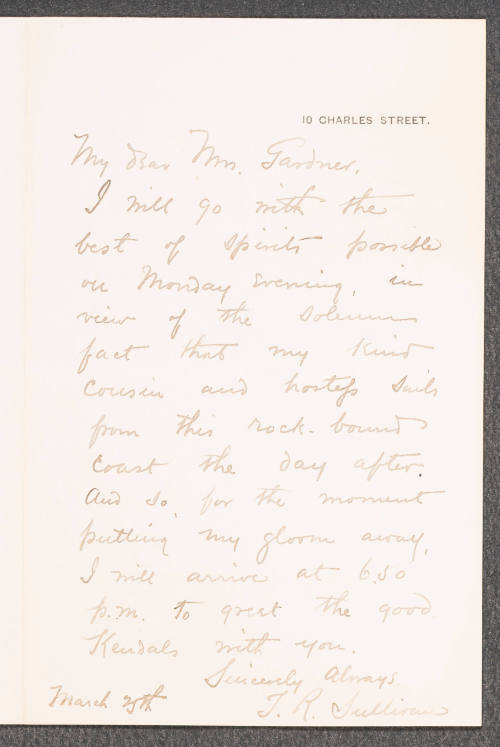 10 CHARLES STREET.
My dear Mrs. Gardner,
I will go with the
best of spirits possible
on Monday evening, in
view of the solemn
fact that my kind
cousin and hostess sails
from this rock-bound
coast the day after.
And so, for the moment
putting my gloom away,
I will arrive at 6.50
p.m. to greet the good
Kendals with you.
Sincerely always,
T. R. Sullivan
March 25th